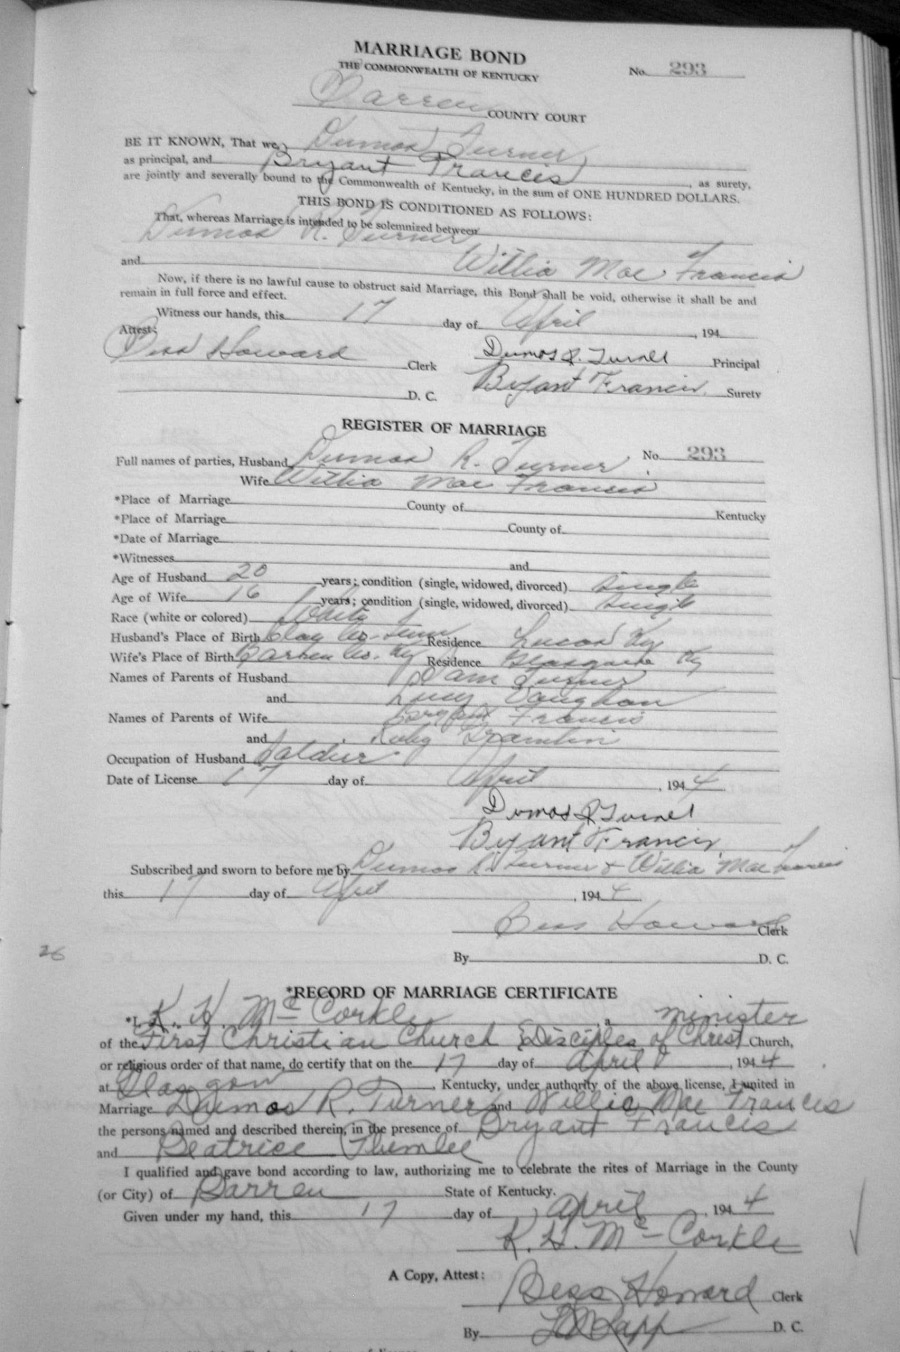 MARRIAGE BOND
THE COMMONWEALTH OF KENTUCKY
No. 293
Barren COUNTY COURT
BE IT KNOWN, That we, Dumas Turner
as principal, and Bryant Frances, as surety,
are jointly and severally bound to the Commonwealth of Kentucky, in the sum of ONE HUNDRED DOLLARS.
THIS BOND IS CONDITIONED AS FOLLOWS:
That, whereas Marriage is intended to be solemnized between
Dumas R. Turner
and Willia Mae Francis
Now, if there is no lawful cause to obstruct said Marriage, this Bond shall be void, otherwise it shall be and
remain in full force and effect.
Witness our hands, this 17 day of April, 194
Attest:
Bess Howard Clerk Dumas R. Turner Principal
D. C. Bryant Francis Surety
REGISTER OF MARRIAGE
Full names of parties, Husband Dumas R. Turner No. 293
Wife Willia Mae Francis
*Place of Marriage County of Kentucky
*Place of Marriage County of
*Date of Marriage
*Witnesses and
Age of Husband 20 years; condition (single, widowed, divorced) Single
Age of Wife 16 years; condition (single, widowed, divorced) Single
Race (white or colored) White
Husband's Place of Birth Clay Co. Tenn Residence Lucas Ky
Wife's Place of Birth Barren Co. Ky Residence Glasgow Ky
Names of Parents of Husband Sam Turner
and Lucy Vaughan
Names of Parents of Wife Francis
and Ruby
Occupation of Husband Soldier
Date of License 17 day of April, 194 4
Dumas R Turner
Bryant Francis
Subscribed and sworn to before me by Dumas R. Turner & Willia Mae Francis
this 17 day of April, 194 4
Bess Howard Clerk
By D. C.
26
*RECORD OF MARRIAGE CERTIFICATE
*I, K. H. McCorkle, a minister
of the First Christian Church Disciples of Christ Church,
or religious order of that name, do certify that on the 17 day of April, 194 4
at Glasgow, Kentucky, under authority of the above license, I united in
Marriage Dumas R. Turner and Willia Mae Frances
the persons named and described therein, in the presence of Bryant Francis
and Beatrice
I qualified and gave bond according to law, authorizing me to celebrate the rites of Marriage in the County
(or City) of Barren State of Kentucky.
Given under my hand, this 17 day of April, 194 4
K. H. McCorkle
A Copy, Attest:
Bess Howard Clerk
By D. C.